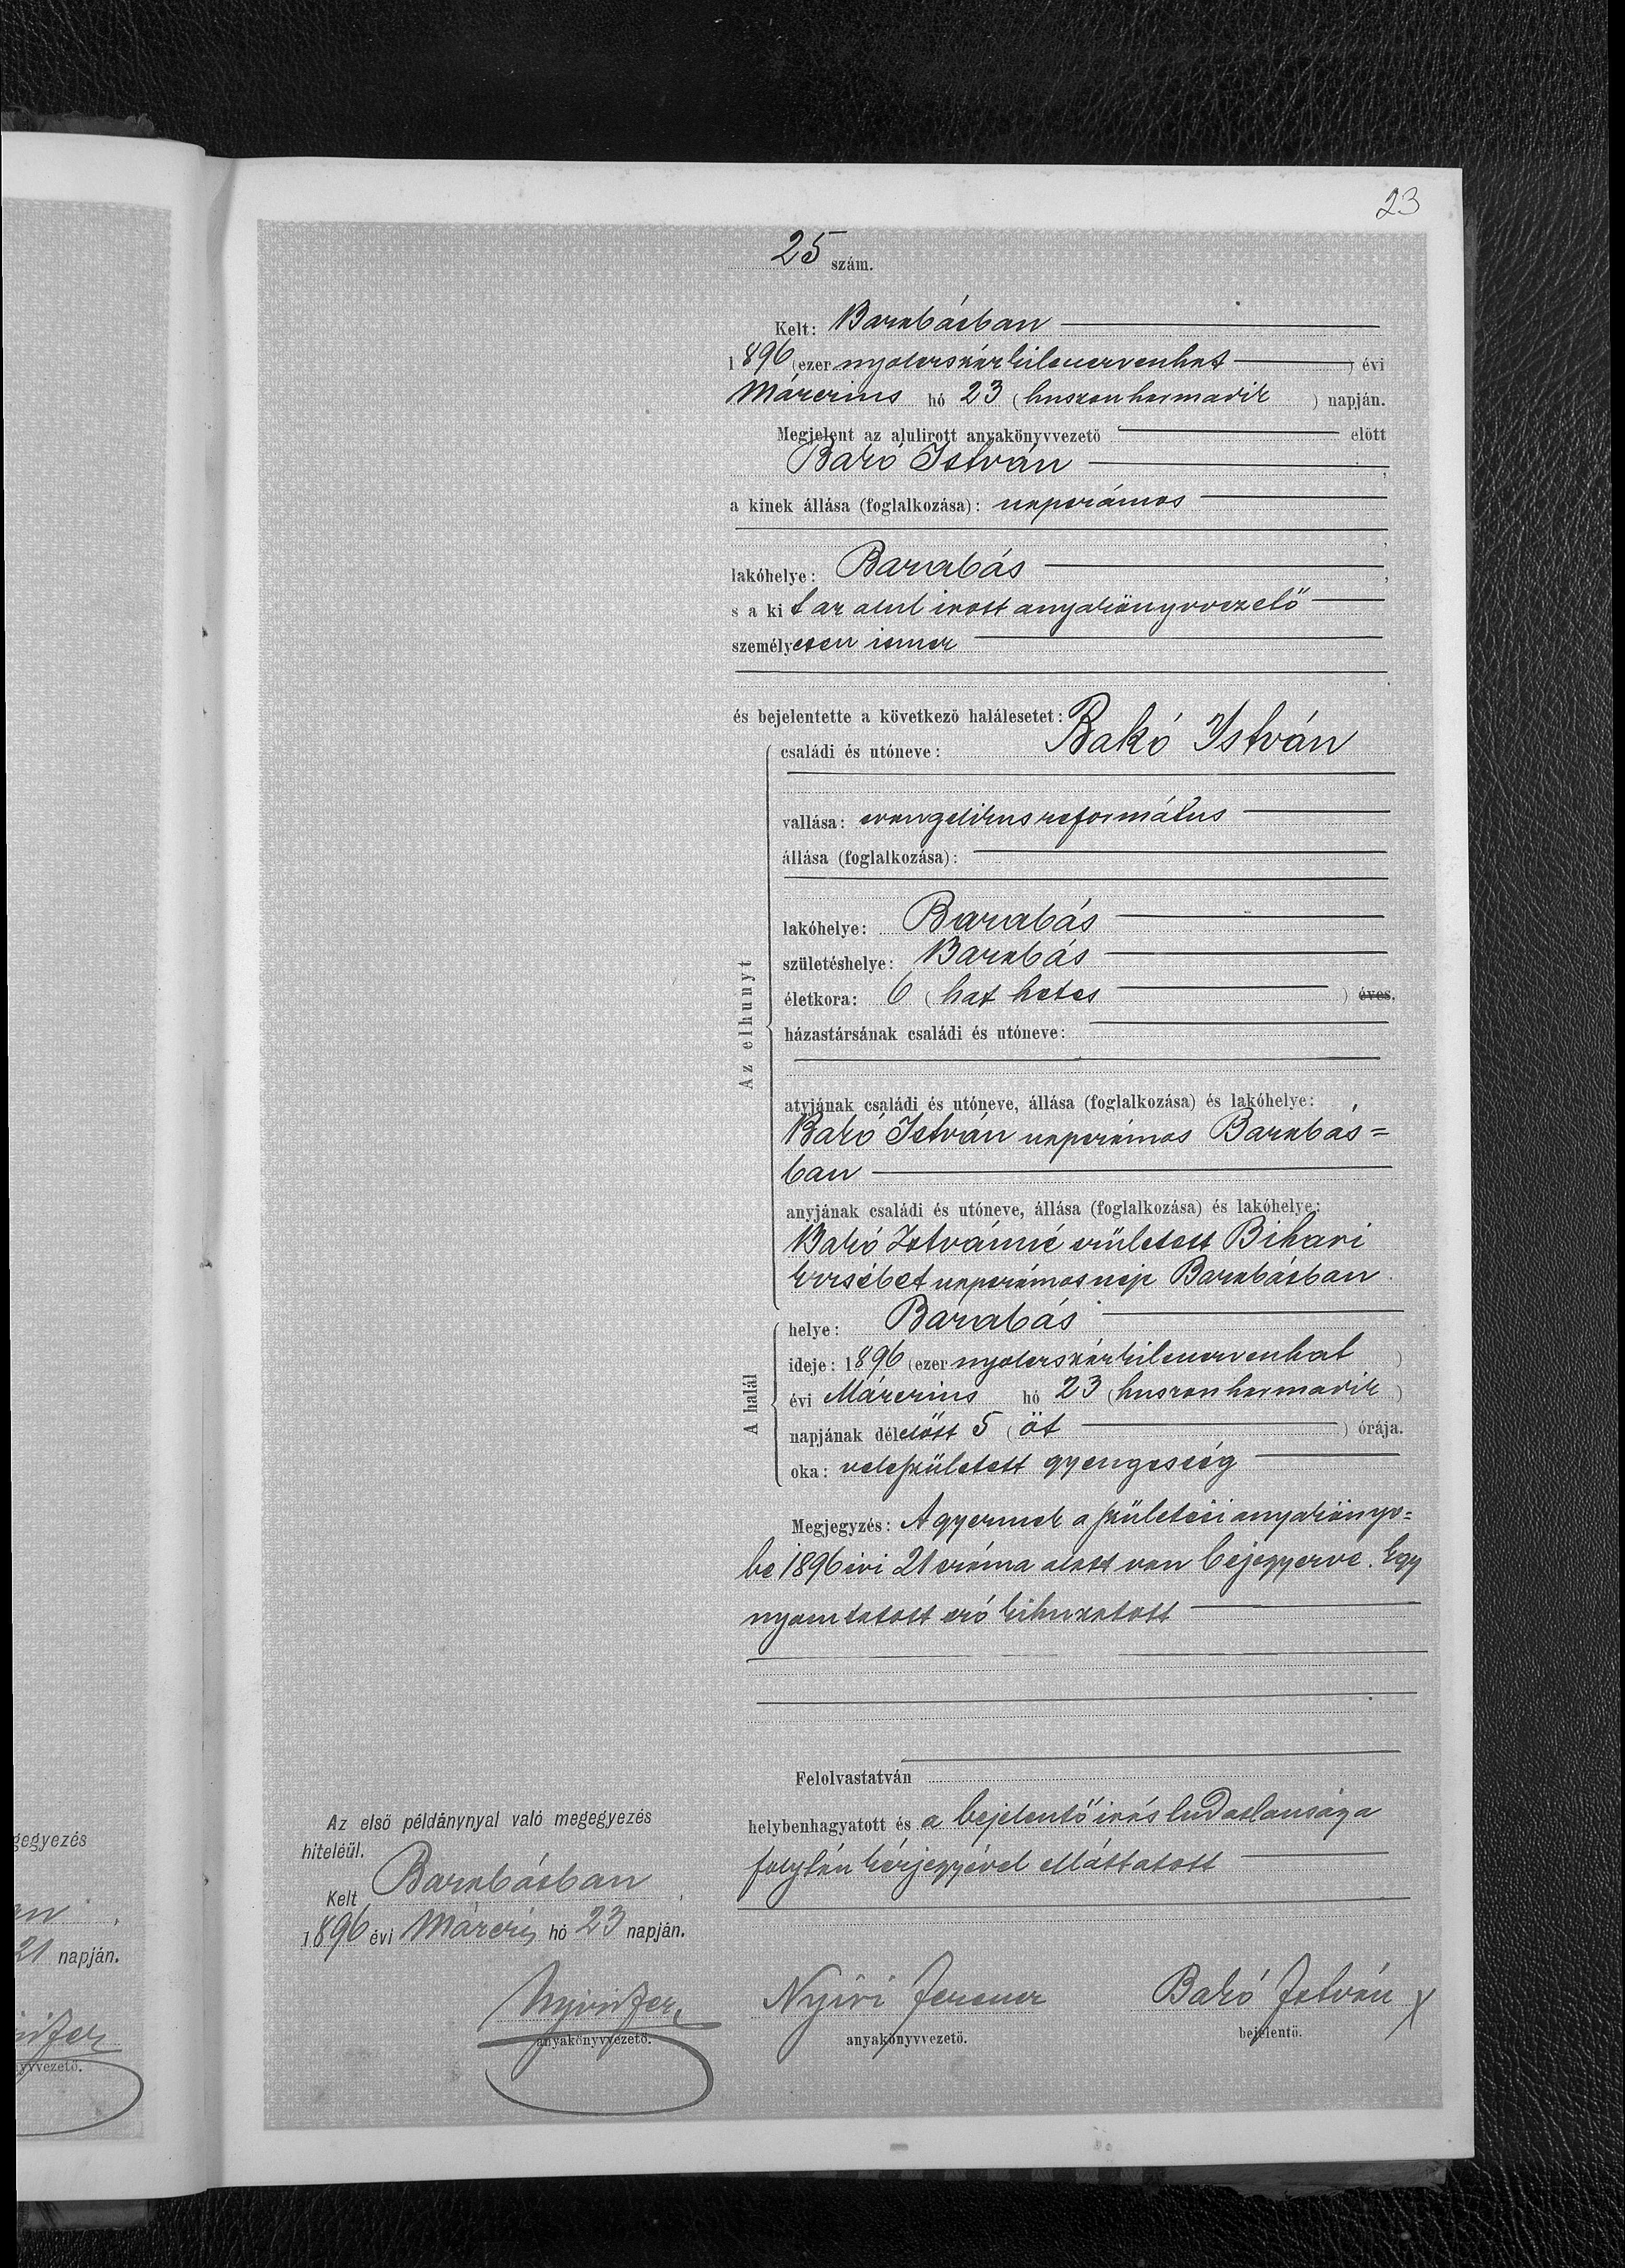 23
25 szám.
Kelt: Barabásban
1896 (ezer nyolcszázkilencvenhat ) évi
Március hó 23 (huszonharmadik ) napján.
Megjelent az alulirott anyakönyvvezető előtt
Bakó István
a kinek állása (foglalkozása): napszámos
lakóhelye: Barabás
s a kit az alul irott anyakönyvvezető
személyesen ismer
és bejelentette a következő halálesetet:
családi és utóneve: Bakó István
vallása: evangelikus református
állása (foglalkozása):
lakóhelye: Barabás
születéshelye: Barabás
életkora: 6 (hat hetes ) éves.
házastársának családi és utóneve:
Az elhunyt
atyjának családi és utóneve, állása (foglalkozása) és lakóhelye:
Bakó István napszámos Barabás=
ban
anyjának családi és utóneve, állása (foglalkozása) és lakóhelye:
Bakó Istvánné született Bihari
Erzsébet napszámos neje Barabásban
A halál
helye: Barabás
ideje: 1896 (ezer nyolcszázkilencvenhat )
évi Március hó 23 (huszonharmadik )
napjának délelőtt 5 (öt ) órája.
oka: veleszületett gyengeség
Megjegyzés: A gyermek a születési anyakönyv=
be 1896 évi 21 száma alatt van bejegyezve. Egy
nyomtatott szó kihuzatott
Felolvastatván
helybenhagyatott és a bejelentő irástudatlansága
folytán kézjegyével elláttatott
Az első példánynyal való megegyezés
hiteléül.
Kelt Barabásban
1896 évi Március hó 23 napján.
Nyiri Fer.
anyakönyvvezető.
Nyiri Ferencz
anyakönyvvezető.
Bakó István X
bejelentő.
gegyezés
21 napján.
yvvezető.